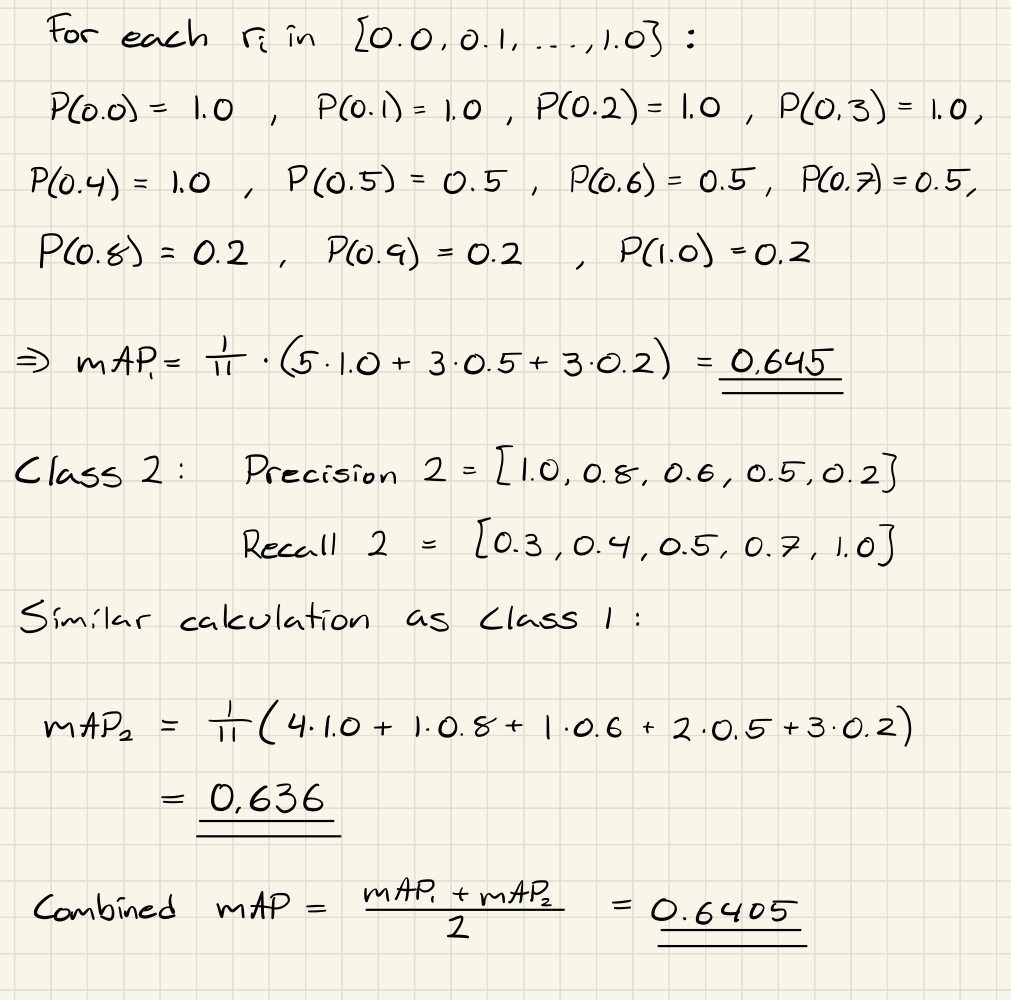 For each rᵢ in [0.0, 0.1, ..., 1.0] :
P(0.0) = 1.0 , P(0.1) = 1.0 , P(0.2) = 1.0 , P(0,3) = 1.0,
P(0.4) = 1.0 , P(0.5) = 0.5 , P(0.6) = 0.5, P(0.7) = 0.5,
P(0.8) = 0.2 , P(0.9) = 0.2 , P(1.0) = 0.2
⇒ mAP₁ = 1/11 · (5·1.0 + 3·0.5 + 3·0.2) = 0.645
Class 2: Precision 2 = [1.0, 0.8, 0.6, 0.5, 0.2]
Recall 2 = [0.3, 0.4, 0.5, 0.7, 1.0]
Similar calculation as Class 1 :
mAP₂ = 1/11 (4·1.0 + 1·0.8 + 1·0.6 + 2·0.5 + 3·0.2)
= 0,636
Combined mAP = (mAP₁ + mAP₂)/2 = 0.6405